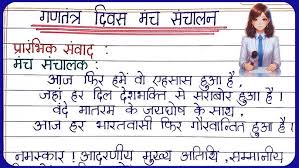 गणतंत्र दिवस मंच संचालन
प्रारंभिक संवाद :
मंच संचालक :
आज फिर हमें वो एहसास हुआ है,
जहां हर दिल देशभक्ति से सराबोर हुआ है।
वंदे मातरम के जयघोष के साथ,
आज हर भारतवासी फिर गौरवान्वित हुआ है।
नमस्कार ! आदरणीय मुख्य अतिथि, सम्माननीय